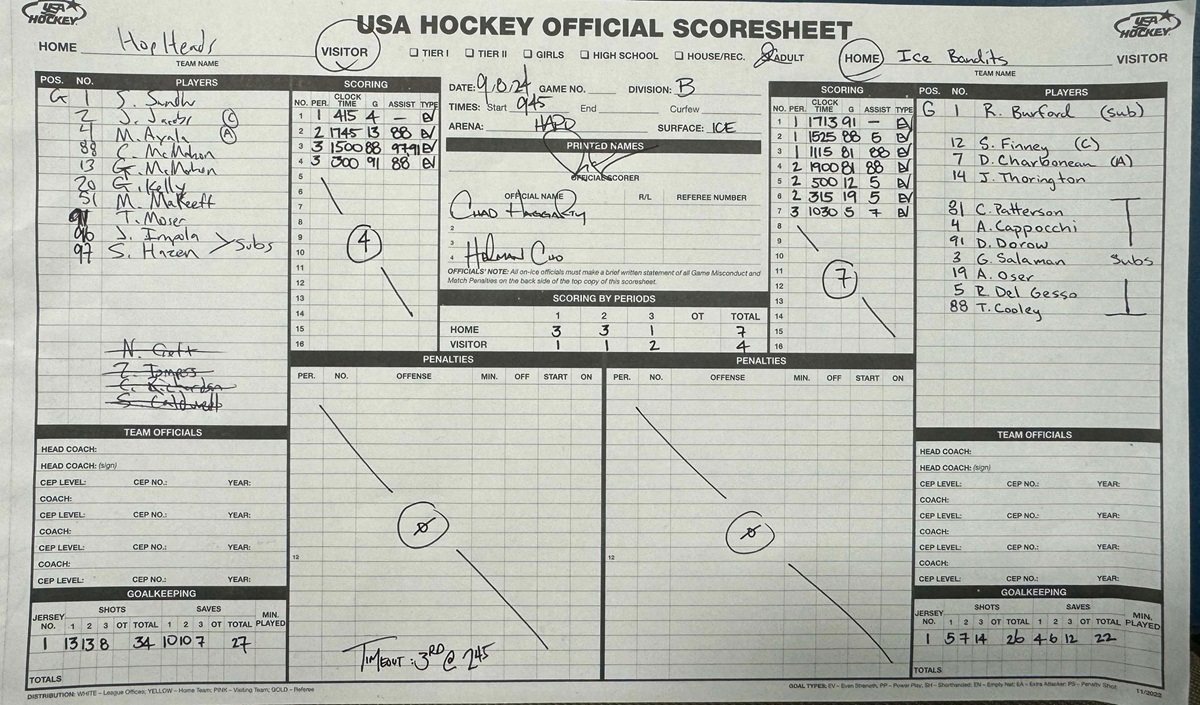 USA HOCKEY
USA HOCKEY OFFICIAL SCORESHEET
USA HOCKEY
HOME HopHeads VISITOR
TEAM NAME
TIER I TIER II GIRLS HIGH SCHOOL HOUSE/REC. ADULT
HOME Ice Bandits VISITOR
TEAM NAME
POS. NO. PLAYERS
G 1 S. Sundh
2 J. Jacobs (C)
4 M. Ayala (A)
88 C. McMahon
13 G. McMahon
20 G. Kelly
51 M. Makeeft
91 T. Moser
96 J. Impola
97 S. Hazen > Subs
N. Croft
E. Richardson
S. Caldwell
SCORING
NO. PER. CLOCK TIME G ASSIST TYPE
1 1 415 4 — EV
2 2 1745 13 88 EV
3 3 1500 88 97 91 EV
4 3 300 91 88 EV
5
6
7
8
9
10
11
12
13
14
15
16
4
DATE: 9/8/24 GAME NO. DIVISION: B
TIMES: Start 945 End Curfew
ARENA: HAPO SURFACE: ICE
PRINTED NAMES
OFFICIAL SCORER
OFFICIAL NAME R/L REFEREE NUMBER
Chad Haggarty
2
3
4 Holman Cuo
OFFICIALS' NOTE: All on-ice officials must make a brief written statement of all Game Misconduct and
Match Penalties on the back side of the top copy of this scoresheet.
SCORING BY PERIODS
1 2 3 OT TOTAL
HOME 3 3 1 7
VISITOR 1 1 2 4
SCORING
NO. PER. CLOCK TIME G ASSIST TYPE
1 1 1713 91 — EV
2 1 1525 88 5 EV
3 1 1115 81 88 EV
4 2 1900 81 88 EV
5 2 500 12 5 EV
6 2 315 19 5 EV
7 3 1030 5 7 EV
8
9
10
11
12
13
14
15
16
7
POS. NO. PLAYERS
G 1 R. Burford (sub)
12 S. Finney (C)
7 D. Charboneau (A)
14 J. Thorington
81 C. Patterson
4 A. Cappocchi
91 D. Dorow
3 G. Salaman Subs
19 A. Oser
5 R. Del Gesso
88 T. Cooley
PENALTIES
PER. NO. OFFENSE MIN. OFF START ON
12
Ø
TIMEOUT: 3RD @ 245
PENALTIES
PER. NO. OFFENSE MIN. OFF START ON
12
Ø
TEAM OFFICIALS
HEAD COACH:
HEAD COACH: (sign)
CEP LEVEL: CEP NO.: YEAR:
COACH:
CEP LEVEL: CEP NO.: YEAR:
COACH:
CEP LEVEL: CEP NO.: YEAR:
COACH:
CEP LEVEL: CEP NO.: YEAR:
GOALKEEPING
JERSEY NO. SHOTS 1 2 3 OT TOTAL SAVES 1 2 3 OT TOTAL MIN. PLAYED
1 13 13 8 34 10 10 7 27
TOTALS
TEAM OFFICIALS
HEAD COACH:
HEAD COACH: (sign)
CEP LEVEL: CEP NO.: YEAR:
COACH:
CEP LEVEL: CEP NO.: YEAR:
COACH:
CEP LEVEL: CEP NO.: YEAR:
COACH:
CEP LEVEL: CEP NO.: YEAR:
GOALKEEPING
JERSEY NO. SHOTS 1 2 3 OT TOTAL SAVES 1 2 3 OT TOTAL MIN. PLAYED
1 5 7 14 26 4 6 12 22
TOTALS
DISTRIBUTION: WHITE – League Offices; YELLOW – Home Team; PINK – Visiting Team; GOLD – Referee
GOAL TYPES: EV – Even Strength, PP – Power Play, SH – Shorthanded, EN – Empty Net, EA – Extra Attacker, PS – Penalty Shot
11/2022